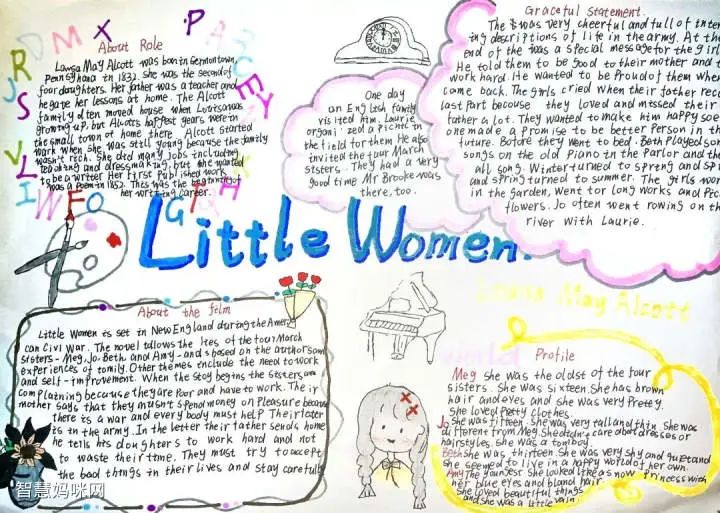 About Role
Lausa May Alcott was born in Germontown,
Pennglhana in 1832. She was the second of
four daughters. Her father was a teacher and
he gave her lessons at home. The Alcott
family often moved house when Lourisawas
growing up, but Alcotts happest years were in
the small town of home there. Alcott started
work when she was still young because the family
wasn't rich. She did many jobs including
teaching and dressmaking, but she wanted
to be a writer Her first published work
was a Poem in 1852. This was the beginning of
her writing carter.
One day
an English family
visited him. Laurie
organi zed a picnic in
the field for them He also
invited the four March
sisters. They had a very
good time Mr Brooke was
there, too.
Graceful Statement.
The was very cheerful and full of inter
ing descriptions of life in the army. At the
end of the was a special message for the girl
He told them to be good to their mother and t
work hard. He wanted to be Proud of them whe
come back. The girls cried when their father rec
last part becouse they loved and missed their
father a lot. They wanted to make him happy soe
one made a promise to be better Person in th
future. Before they went to bed. Beth Played son
songs on the old Piano in the Parlor and the
all song. Winter turned to spreng and Sp
and spring turned to summer. The girls wor
in the garden, Went tor long works and Pic
flowers. Jo often went rowing on th
river with Laurie.
Little Women.
Louns May Alcott
About the film
Little Women is set in New England during the Ameri
can Civil War. The novel tollows the lies of the four March
sisters - Meg, Jo, Beth, and Amy - and s based on the author's own
experiences of tomily. Other themes include the need to work
and self-improvement. When the stoy begins the sisters are
complaining because they are Poor and have to work. The ir
mother says that they musn't spend money on Pleasure because
there is a war and every body must help Their tater
is in the army. In the letter their tather sends home
he tells his doughters to work hard and not
to waste their time. They must try to accept
the bad things in their lives and stay carefull
Profile
Meg she was the oldst of the four
sisters. She was sixteen She has brown
hair and eyes and she was very Pretty.
She loved Pretty clothes.
Jo she was fifteen. She was very tall and thin. She was
different from Meg. She didn't care about dresses or
hairstyles. She was a tomboy
Beth she was thirteen. She was very shy and quiet and
she seemed to live in a happy world of her own.
Amy The youngest she looked like a snow Princess with
her blue eyes and bland hair.
She loved beautiful things
and she was a little vain
智慧妈咪网